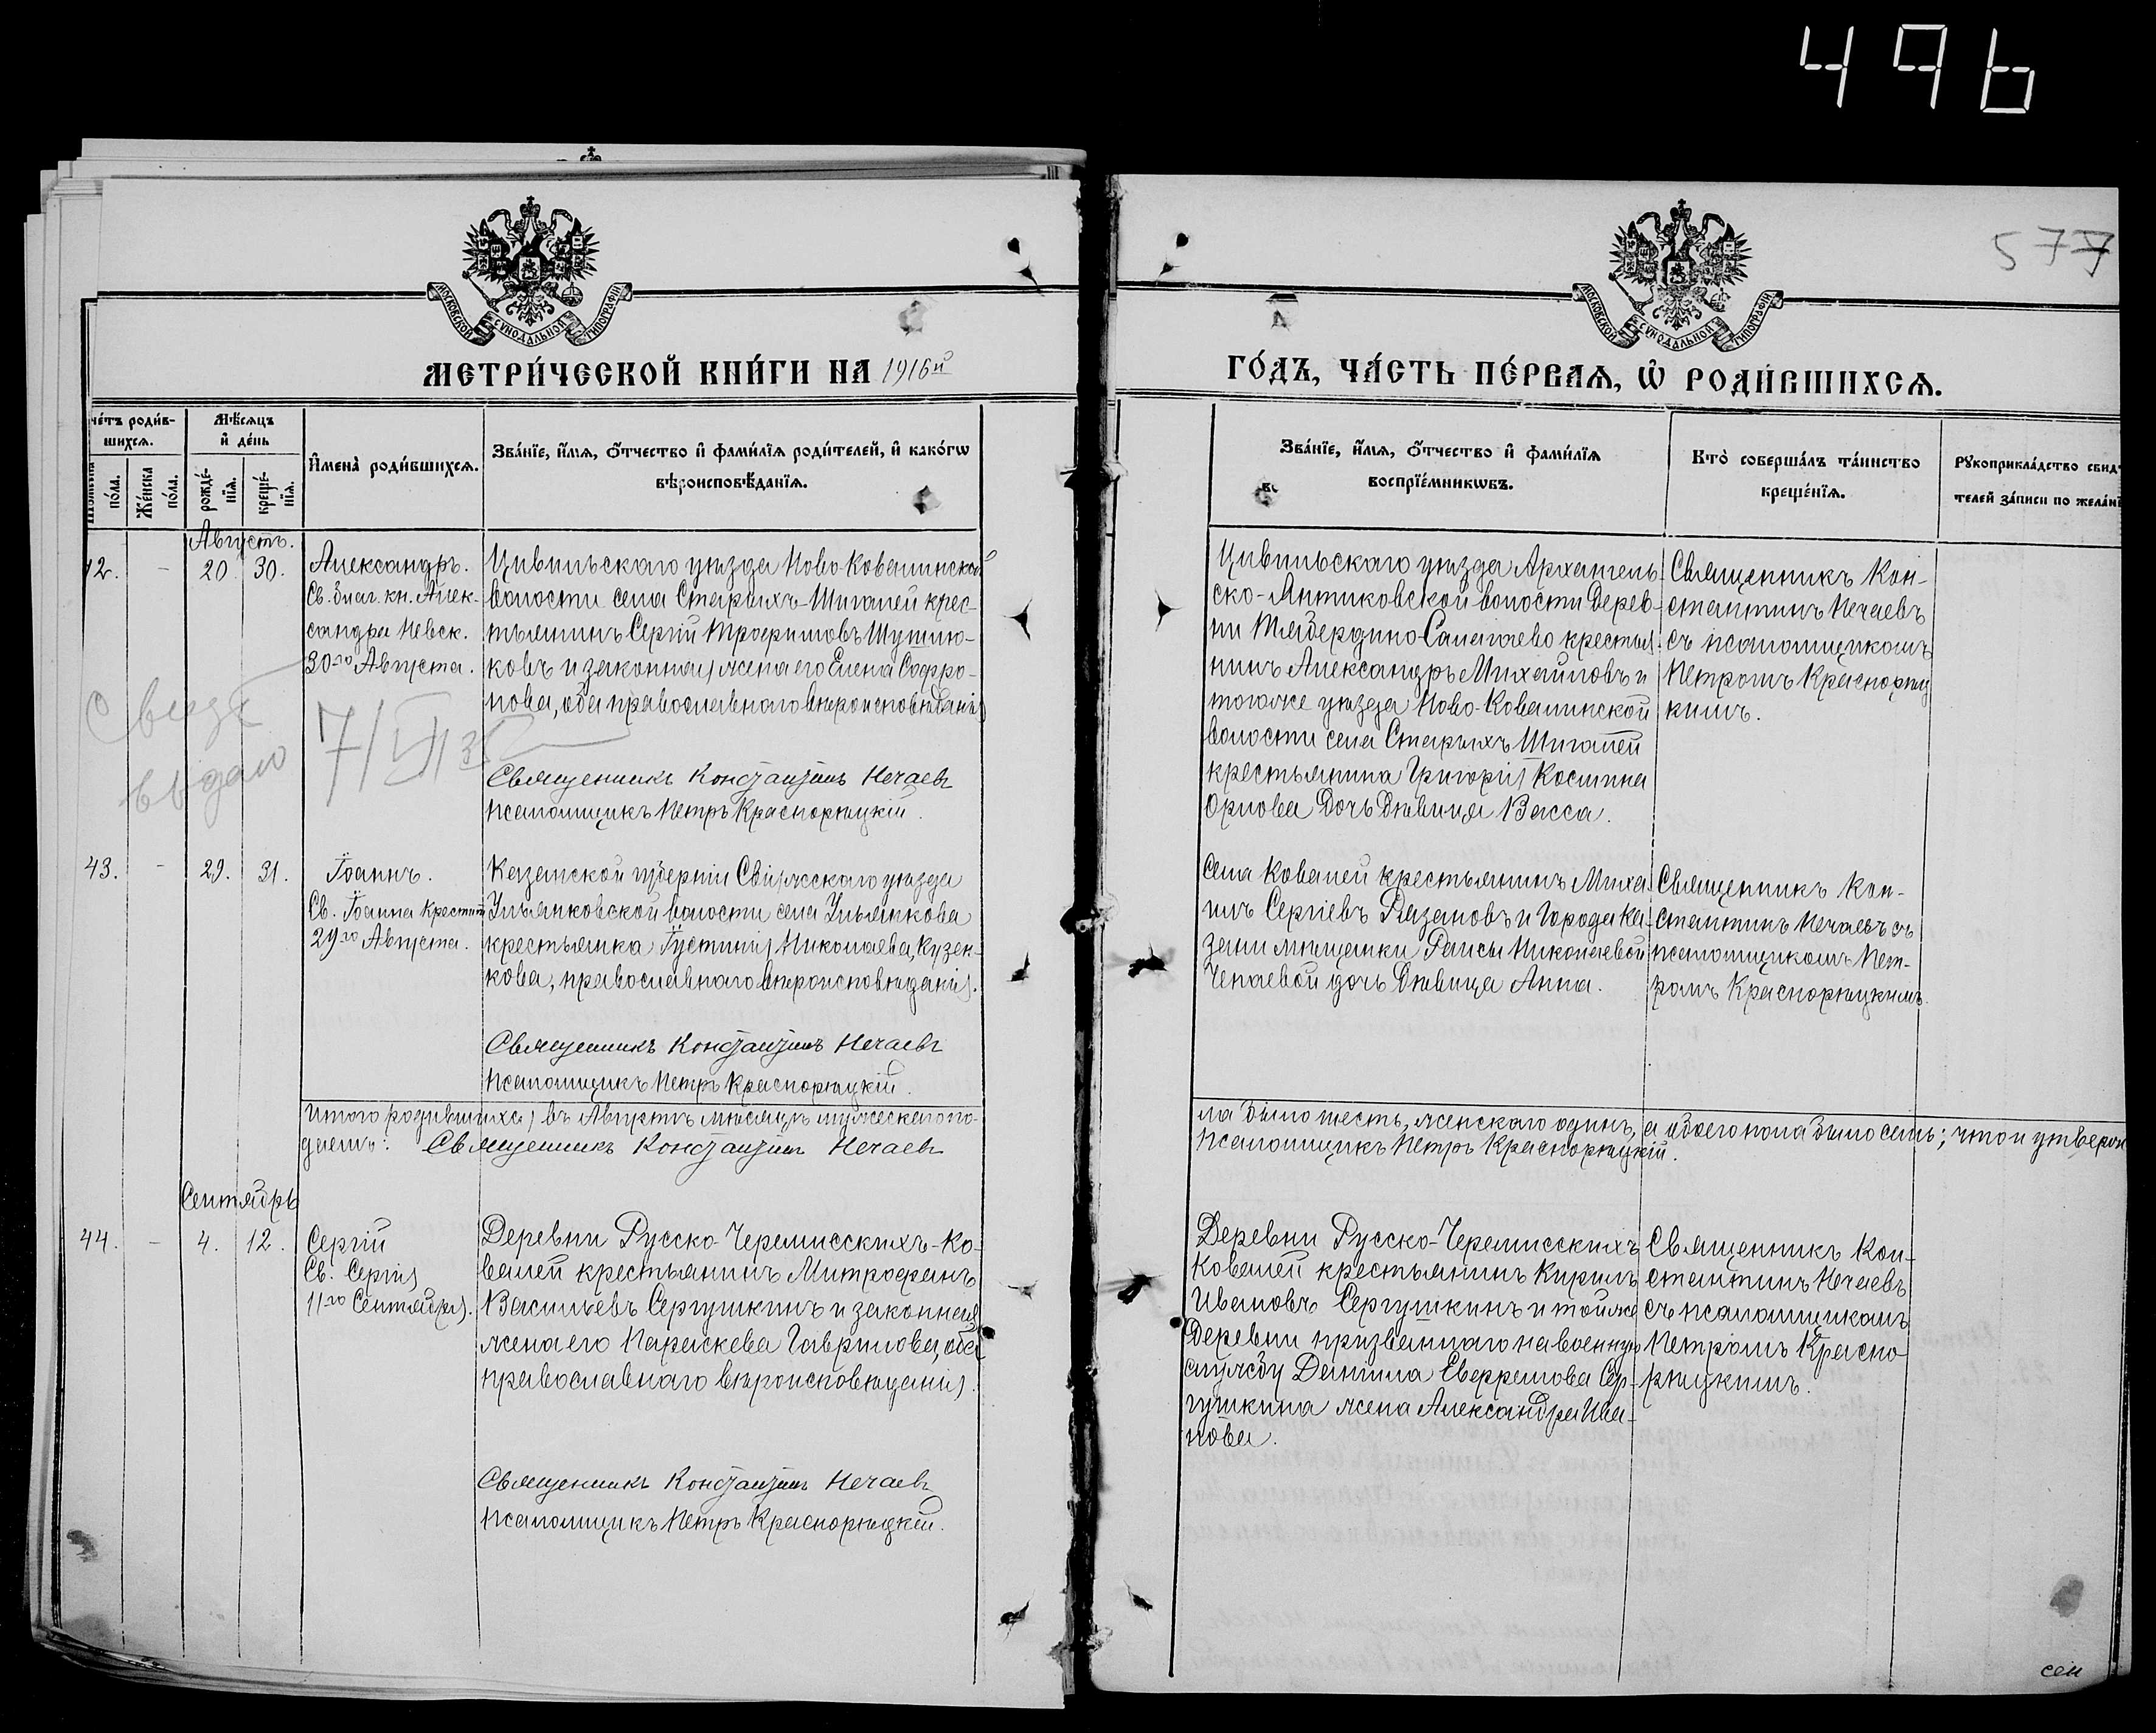 496
577
МОСКОВСКОЙ СѴНОДАЛЬНОЙ ТИПОГРАФІИ
МОСКОВСКОЙ СѴНОДАЛЬНОЙ ТИПОГРАФІИ
МЕТРИ́ЧЕСКОЙ КНИ́ГИ НА 1916й
ГО́ДЪ, ЧА́СТЬ ПЕ́РВАѦ, Ѡ РОДИ́ВШИХСѦ.
че́тъ роди́в-
шихсѧ.
по́ла.
Же́нска
по́ла.
Мѣ́сѧцъ
и҆ де́нь
рожде́-
нїѧ.
креще́-
нїѧ.
И҆мена̀ роди́вшихсѧ.
Зва́нїе, и҆́мѧ, ѻ҆́тчество и҆ фами́лїѧ роди́телей, и҆ како́гѡ
вѣроисповѣ́данїѧ.
Зва́нїе, и҆́мѧ, ѻ҆́тчество и҆ фами́лїѧ
воспрїе́мникѡвъ.
Кто̀ соверша́лъ та́инство
креще́нїѧ.
Рꙋкоприкла́дство свид
телей за́писи по жела́нї
Августъ.
12. - 20. 30.
Александръ.
Св. благ. кн. Алек-
сандра Невск.
30го Августа.
Цивильскаго уѣзда Ново-Ковалинской
волости села Старыхъ-Шигалей крес-
тьянинъ Сергій Трофимовъ Шутню-
ковъ и законная жена его Елена Софро-
нова, оба православнаго вѣроисповѣданія
Священникъ Константинъ Нечаевъ
Псаломщикъ Петръ Краснорѣцкій.
Цивильскаго уѣзда Архангель-
ско-Янтиковской волости дерев-
ни Тябердино-Салагаево крестья-
нинъ Александръ Михайловъ и
тогоже уѣзда Ново-Ковалинской
волости села Старыхъ Шигалей
крестьянина Григорія Костина
Орлова дочь дѣвица Васса.
Священникъ Кон-
стантинъ Нечаевъ
съ псаломщикомъ
Петромъ Краснорѣц
кимъ.
выдано
43. - 29. 31.
Іоаннъ.
Св. Іоанна Крестит
29го Августа.
Казанской губерніи Свіяжскаго уѣзда
Ульянковской волости села Ульянкова
крестьянка Іустинія Николаева Кузен-
кова, православнаго вѣроисповѣданія.
Священникъ Константинъ Нечаевъ
Псаломщикъ Петръ Краснорѣцкій.
Села Ковалей крестьянинъ Миха-
илъ Сергіевъ Рязановъ и города Ка-
зани мѣщанки Раисы Николаевой
Чепаевой дочь дѣвица Анна.
Священникъ Кон-
стантинъ Нечаевъ съ
псаломщикомъ Пет-
ромъ Краснорѣцкимъ.
Итого родившихся въ Августѣ мѣсяцѣ мужескаго по-
ла было шесть, женскаго одинъ, а обоего пола было семь; что и утверж
даемъ: Священникъ Константинъ Нечаевъ
Псаломщикъ Петръ Краснорѣцкій.
Сентябрь
44. - 4. 12.
Сергій
Св. Сергія
11го Сентября.
Деревни Русско-Черемисскихъ-Ко-
валей крестьянинъ Митрофанъ
Васильевъ Сергушкинъ и законная
жена его Параскева Гаврилова, оба
православнаго вѣроисповѣданія.
Священникъ Константинъ Нечаевъ
Псаломщикъ Петръ Краснорѣцкій.
Деревни Русско-Черемисскихъ
Ковалей крестьянинъ Кирилъ
Ивановъ Сергушкинъ и той же
деревни призваннаго на военную
службу Даніила Евфремова Сер-
гушкина жена Александра Ива-
нова.
Священникъ Кон-
стантинъ Нечаевъ
съ псаломщикомъ
Петромъ Красно-
рѣцкимъ.
сен